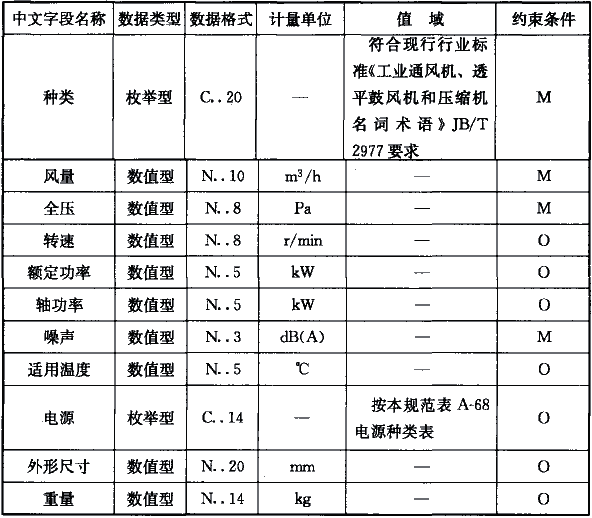 中文字段名称 数据类型 数据格式 计量单位 值 域 约束条件
种类 枚举型 C..20 — 符合现行行业标 M
准《工业通风机、透
平鼓风机和压缩机
名词术语》JB/T
2977要求
风量 数值型 N..10 m³/h — M
全压 数值型 N..8 Pa — M
转速 数值型 N..8 r/min — O
额定功率 数值型 N..5 kW — O
轴功率 数值型 N..5 kW — O
噪声 数值型 N..3 dB(A) — M
适用温度 数值型 N..5 ℃ — O
电源 枚举型 C..14 — 按本规范表 A-68 O
电源种类表
外形尺寸 数值型 N..20 mm — O
重量 数值型 N..14 kg — O